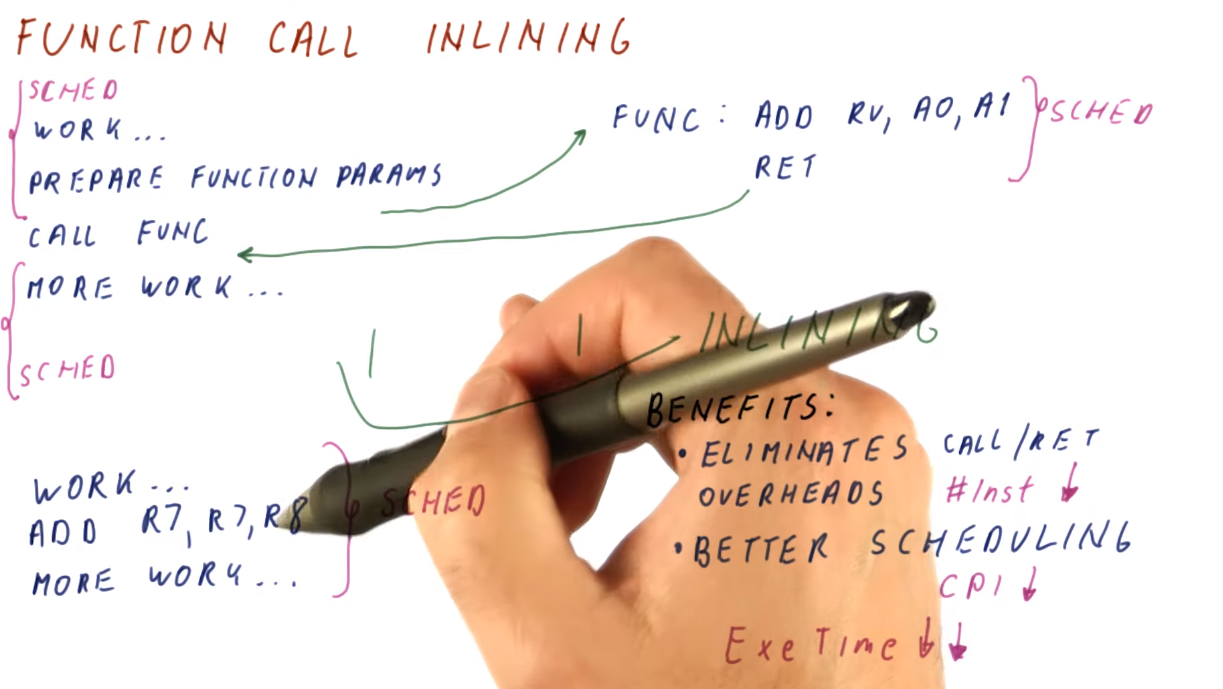 FUNCTION CALL INLINING
SCHED
WORK...
PREPARE FUNCTION PARAMS
CALL FUNC
MORE WORK...
SCHED
FUNC: ADD RV, A0, A1
RET
SCHED
INLINING
WORK...
ADD R7, R7, R8
MORE WORK...
SCHED
BENEFITS:
• ELIMINATES CALL/RET
OVERHEADS #Inst ↓
• BETTER SCHEDULING
CPI ↓
Exe Time ↓↓